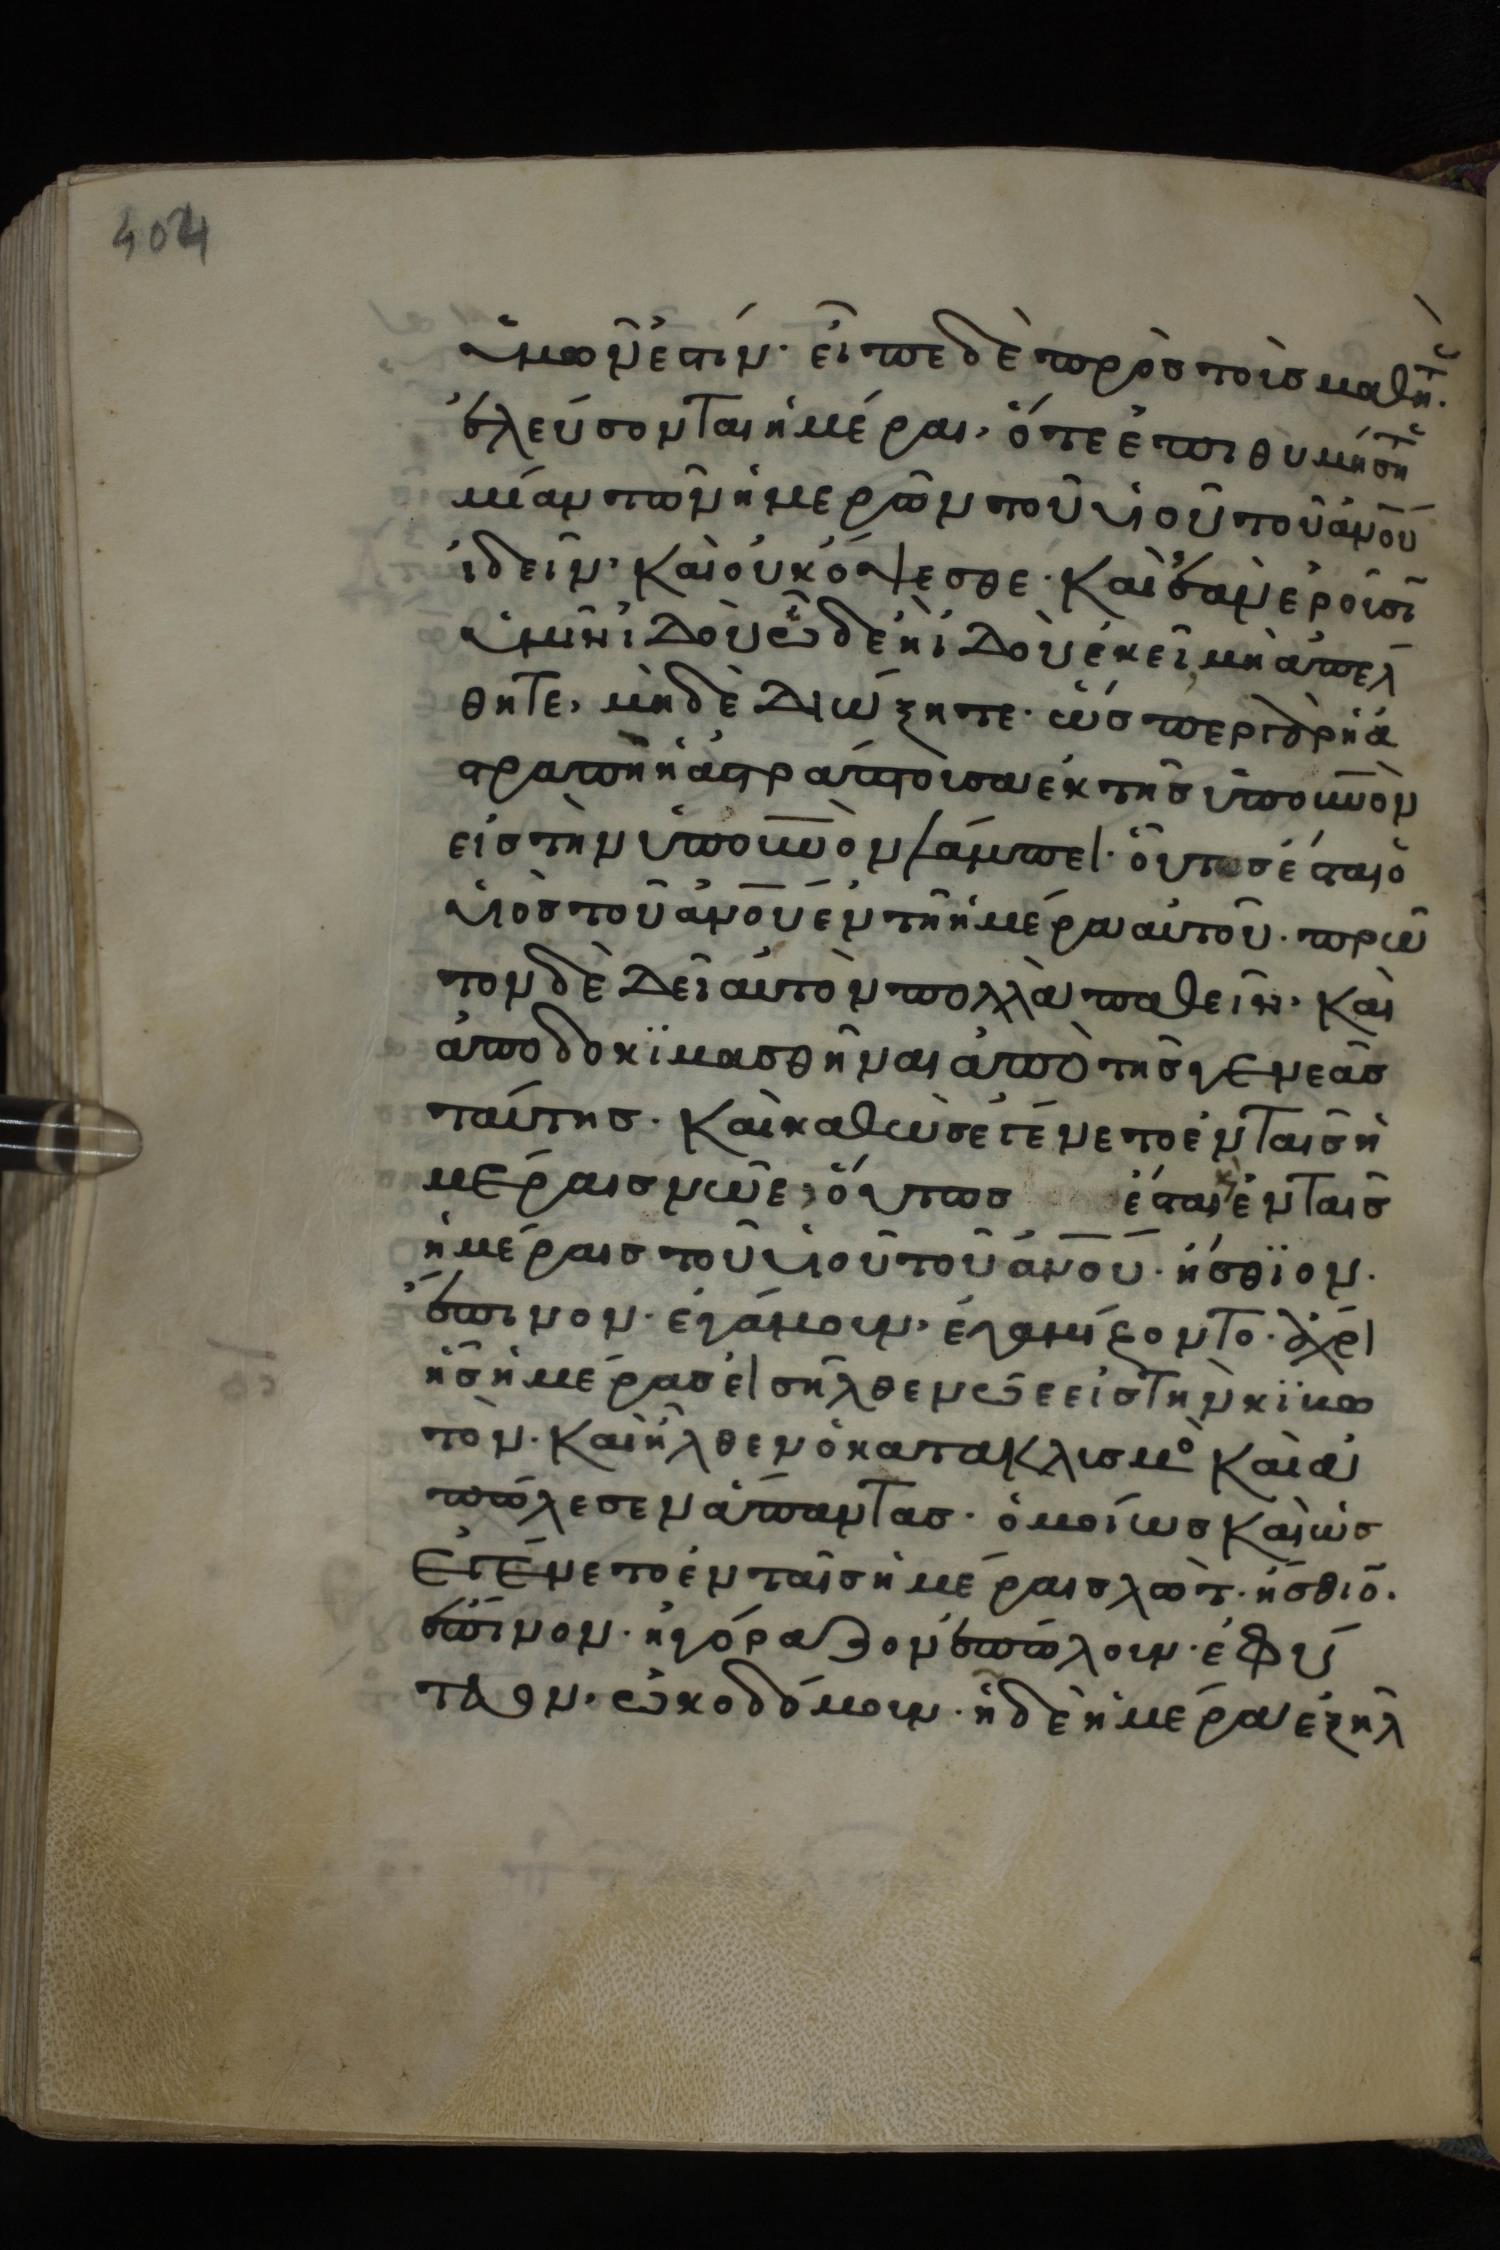 404
ὑμῶν ἐστίν· εἶπε δὲ πρὸς τοὺς μαθητ(ὰς)·
ἐλεύσονται ἡμέραι, ὅτε ἐπιθυμήση
μίαν τῶν ἡμερῶν τοῦ υἱοῦ τοῦ ἀν̅ο̅υ̅
ἰδεῖν, καὶ οὐκ ὄψεσθε· καὶ ἐὰν ἐροῦσι
ὑμῖν ἰδοὺ ὧδε ἢ ἰδοὺ ἐκεῖ, μὴ ἀπέλ
θητε, μηδὲ διώξητε· ὥσπερ γὰρ ἡ ἀ
στραπὴ ἡ ἀστράπτουσα ἐκ τῆς ὑπ' οὐ̅ν̅ὸν
εἰς τὴν ὑπ' οὐ̅ν̅ὸν λάμπει· οὕτως ἔσται ὁ
υἱὸς τοῦ ἀν̅ο̅υ̅ ἐν τῆ ἡμέρα αὐτοῦ· πρῶ
τον δὲ δεῖ αὐτὸν πολλὰ παθεῖν, καὶ
ἀποδοκϊμασθῆναι ἀπὸ τῆς γενεᾶς
ταύτης· καὶ καθὼς ἐγένετο ἐν ταῖς ἡ
μέραις νῶε, οὕτως ἔσται ἐν ταῖς
ἡμέραις τοῦ υἱοῦ τοῦ ἀν̅ο̅υ̅· ἤσθϊον·
ἔπινον· ἐγάμουν, ἐγαμίζοντο· ἄχρι
ἧς ἡμέρας εἰσῆλθε νῶε εἰς τὴν κϊβω
τόν· καὶ ἦλθεν ὁ κατακλισμὸ καὶ ἀ
πώλεσεν ἅπαντας· ὁμοίως καὶ ὡς
ἐγένετο ἐν ταῖς ἡμέραις λώτ· ἤσθιο(ν)·
ἔπινον· ἠγόραζον ἐπώλουν· ἐφύ
τευον, ὠκοδόμουν· ἧ δὲ ἡμέρα ἐξῆλ